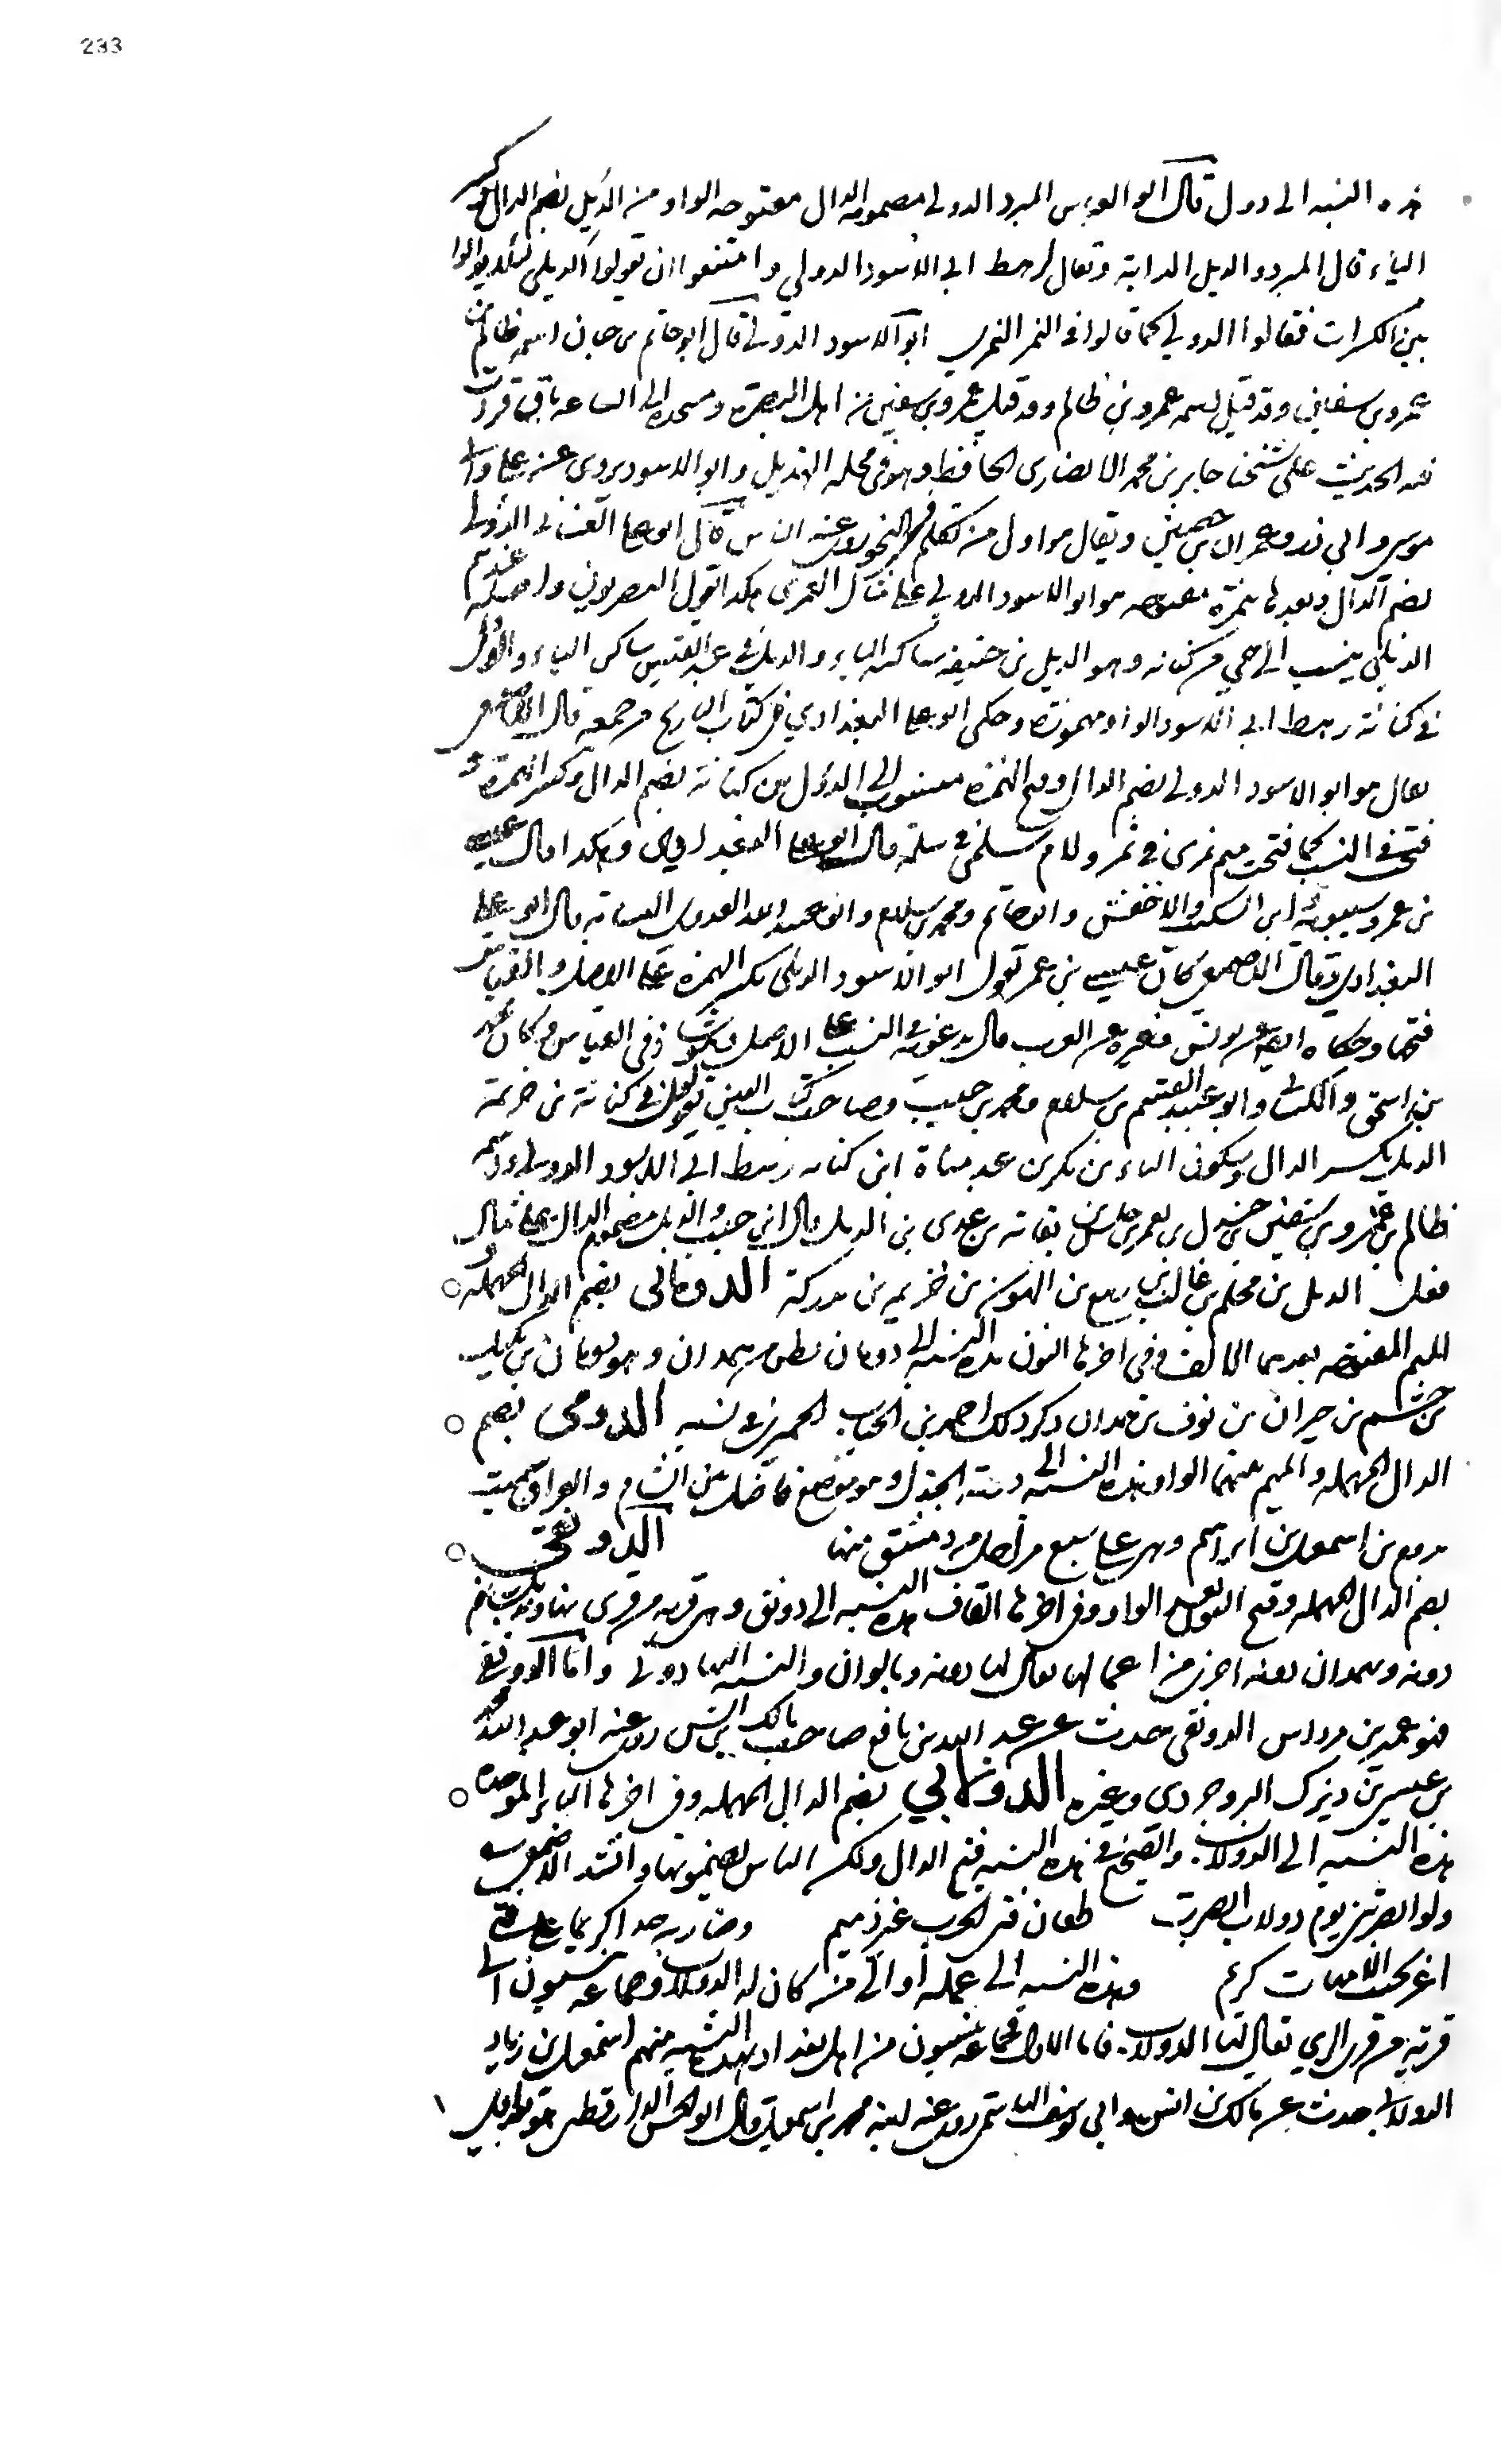 233
هذه النسبه الى دول قال ابو العباس المبرد الدولي مضمومة الدال مفتوحه الواو من الدئل بضم الدال وكسر
الياء قال المبرد والديل الدابة ويقال لرهط ابي الاسود الدولي وامتنعوا ان يقولوا الديلي لئلا يوالوا
بين الكسرات فقالوا الدولي كما قالوا في النمر النمري ابو الاسود الدولي قال ابو حاتم بن حبان اسمه ظالم بن
عمرو بن سفيان وقد قيل اسمه عمرو بن ظالم وقد قيل عمرو بن سفين من اهل البصرة ومسجده الى الساعه باق قرات
فيه الحديث على شيخنا جابر بن محمد الانصارى الحافظ وهو في محله الهذيل وابو الاسود يروى عن على وابى
موسى وابي ذر وعمران بن حصين ويقال هو اول من تكلم في النحو روى عنه الناس قال ابو على الغساني الدؤلى
بضم الدال وبعدها همزة مفتوحه هو ابو الاسود الدولي على مثال العمرى هكذا يقول البصريون واصله عندهم
الديلي ينسب الى حي من كنانه وهو الديل بن حنيفه ساكنه الياء والديل في عبد القيس ساكن الياء والدول
في كنانة رهط ابي الاسود الواو مهموزة وحكى ابو على البغدادي في كتاب البارع من جمعه قال الاصمعى
يقال هو ابو الاسود الدولي بضم الدال وفتح الهمزة منسوب الى الدؤل من كنانة بضم الدال وكسر الهمزة و
فتحت في النسب كما فتحت ميم نمرى في نمر ولام سلمى في سلمه قال ابو على البغدادي وهكذا قال عيسى
بن عمرو سيبويه وابن السكيت والاخفش وابو حاتم ومحمد بن سلام قال ابو على
البغدادى وقال الاصمعى كان عيسى بن عمر يقول ابو الاسود الديلى بكسر الهمزة على الاصل والقياس
فتحها وحكاه ايضا عن يونس وغيره عن العرب قال يدعونه في النسب على الاصل وهو شاذ في القياس وكان محمد
بن اسحق والكلبى وابو عبيد القسم بن سلام ومحمد بن حبيب وصاحب كتاب العين يقولون في كنانة بن خزيمة
الديل بكسر الدال وسكون الياء بن بكر بن عبد مناة ابن كنانه رهط ابي الاسود الدولى واسمه
ظالم بن عمرو بن سفين بن جندل بن يعمر بن حلس بن نفاثه بن عدى بن الديل قال ابن حبيب والديل مضموم الدال على مثال
فعل الديل بن محلم بن غالب بن ييع بن الهون بن خزيمه بن مدركة الدومانى بضم الدال المهمله و
الميم المفتوحه بعدهما الالف وفي اخرها النون هذه النسبه الى دومان بطن من همدان وهو دومان بن بكيل
بن جشم بن خيران بن نوف بن همدان ذكر ذلك احمد بن الحباب الحميرى في نسبه الدومى بضم
الدال المهمله والميم بينهما الواو هذه النسبه الى دومة الجندل وهو موضع فاضل بين الشام والعراق سميت
بدومه بن اسمعيل بن ابراهيم وهى على سبع مراحل من دمشق منها الدونقى
بضم الدال المهمله وفتح النون بعد الواو وفى اخرها القاف هذه النسبه الى دونق وهى قريه من قرى نهاوند
دونه وبهمدان قريه اخرى من اعمالها يقال لها دونه والنسبه اليها دونى واما الدونقى
فهو عمير بن مرداس الدونقى حدث عن عبد الله بن نافع صاحب مالك بن انس روى عنه ابو عبد الله محمد
بن عيسى بن ديزك البروجردى وغيره الدولابي بضم الدال المهمله وفى اخرها الباء الموحده
هذه النسبه الى الدولاب والصحيح في هذه النسبه فتح الدال ولكن الناس يضمونها وانشد الاصمعى
ولو ابصرتنى يوم دولاب ابصرت طعان فتى في الحرب غير ذميم وضاربه خدا كريما على فتى
اغر نجيب الامهات كريم وهذه النسبه الى عمله او الى من كان له الدولاب وجماعه ينسبون الى
قرية من قرى الري يقال لها الدولاب فاما الاول فجماعه ينسبون من اهل بغداد بهذه النسبه منهم اسمعيل بن زياد
الدولابى حدث عن مالك بن انس وابي يوسف القاضى روى عنه ابنه محمد بن اسمعيل قال ابو الحسن الدارقطنى هو قليل